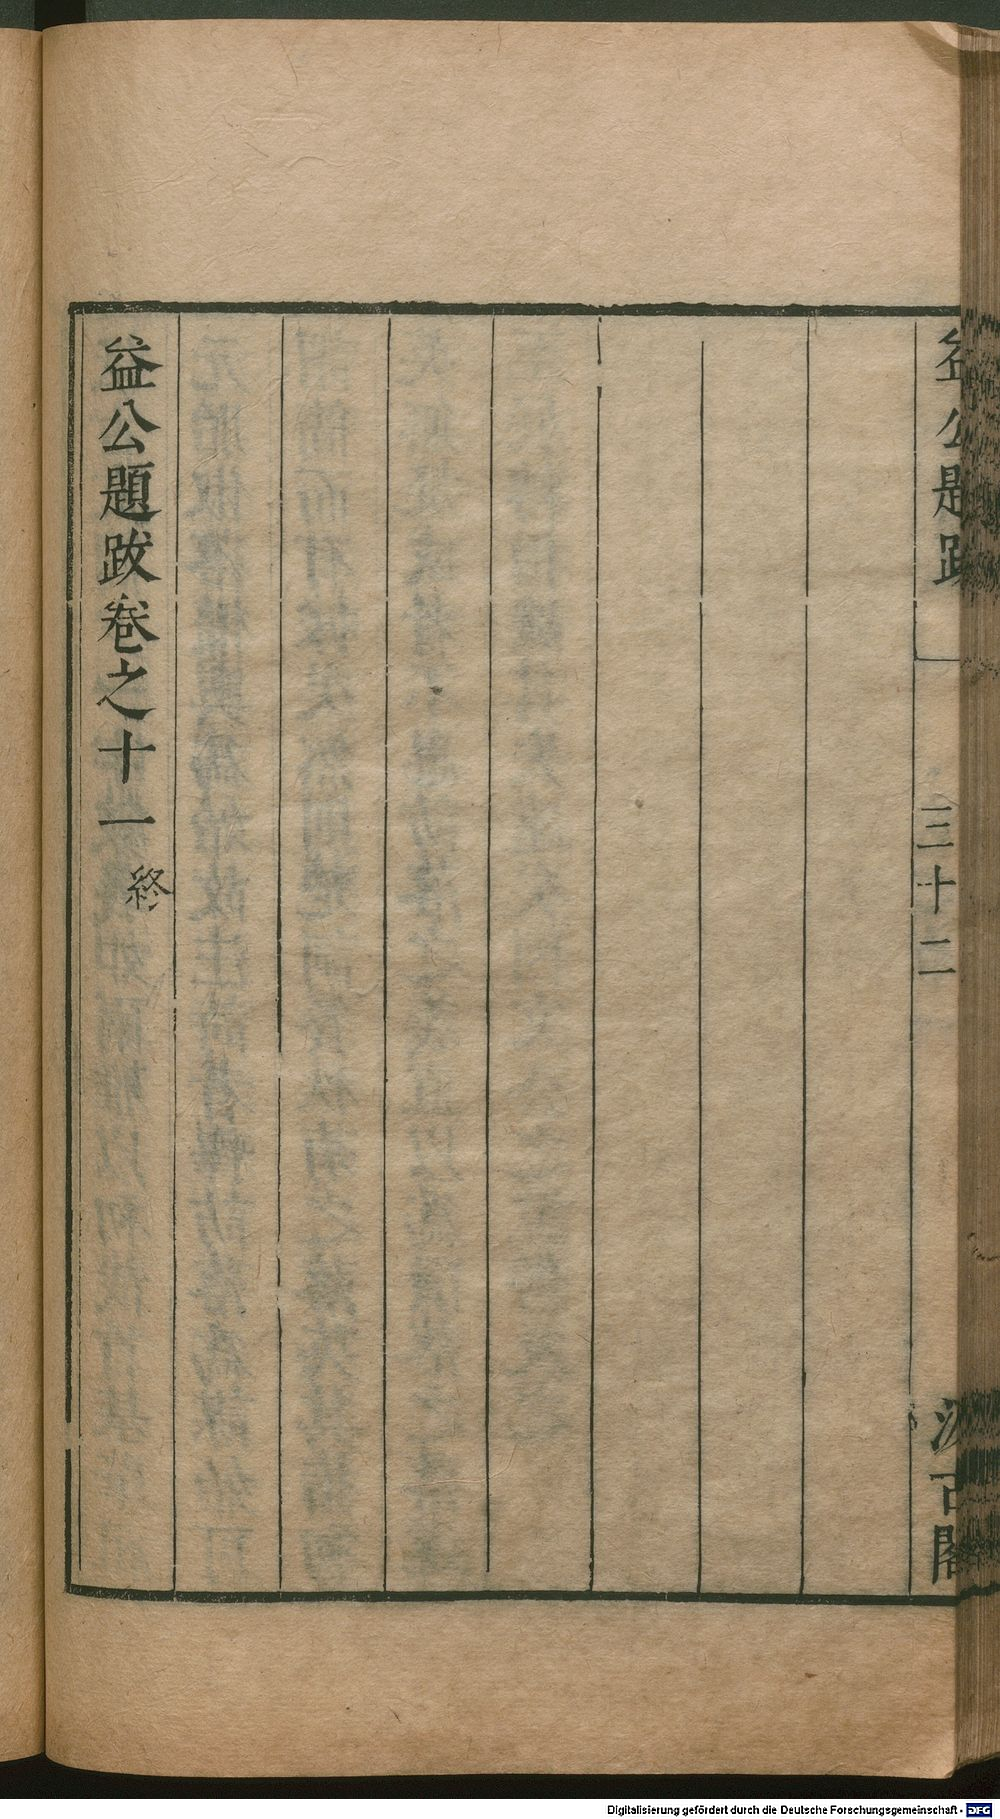 益公題跋
三十二
汲古閣
益公題跋卷之十一 終
Digitalisierung gefördert durch die Deutsche Forschungsgemeinschaft - DFG